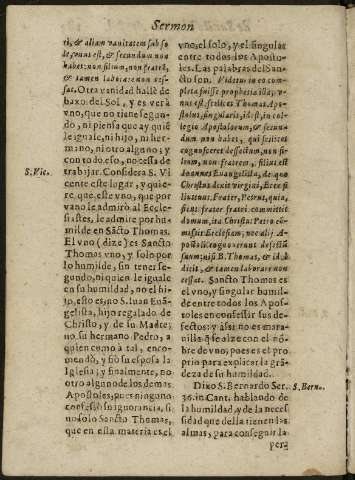 Sermon
ri, & aliam vanitatem sub so
le, vnus est, & secundum non
habet: non filium, non fratrẽ,
& tamen laborare non ces-
sat. Otra vanidad hallè de
baxo del Sol, y es verà
vno, que no tiene segun-
do, ni piensa que ay quiẽ
le iguale, ni hijo, ni her-
mano, ni otro alguno; y
con todo eso, no cessa de
trabajar. Considera S. Vi
cente este lugar, y quie-
re que este vno, que por
vano le admirò al Eccle-
siastes, le admire por hu-
milde en Sãcto Thomas.
El vno (dize) es Sancto
Thomas vno, y solo por
lo humilde, sin tener se-
gundo, ni quien le iguale
en su humildad, no el hi-
jo, esto es, no S. Iuan Euã-
gelista, hijo regalado de
Christo, y de su Madre;
no su hermano Pedro, a
quien como à tal, enco-
mendò, y fiò su esposa la
Iglesia; y finalmente, no
otro alguno de los demas
Apostoles, pues ninguno
confessò su ignorancia, si
no solo Sancto Thomas,
que en esta materia es, el
S. Vic.
vno, el solo, y el singular
entre todos los Aposto-
les. Las palabras del San-
cto son. Videtur in eo com-
pleta fuisse prophetia illa, v-
nus est: scilicet Thomas Apos-
tolus, singularis, id est, in col-
legio Apostolorum, & secun-
dum non habet, qui scilicet
cognosceret deffectum, non fi-
lium, non fratrem, filius est
Ioannes Euangelista, de quo
Christus dixit virgini, Ecce fi
lius tuus. Frater, Petrus, quia,
sicut frater fratri committit
domum, ita Christus Petro co-
missit Ecclesiam; nec alij A-
postoli cognouerunt defectũ
suum; nisi B. Thomas, &
& tamen laborare non
cessat. Sancto Thomas es
el vno, y singular humil-
de entre todos los Apos-
toles en confessar sus de-
fectos: y assi no es mara-
uilla, q̃ se alze con el nõ-
bre de vno, pues es el pro
prio para explicar la grã-
deza de su humildad.
Dixo S. Bernardo Ser.
36. in Cant. hablando de
la humildad, y de la neces
sidad que della tienen las
almas, para conseguir la
S. Bern.
pera